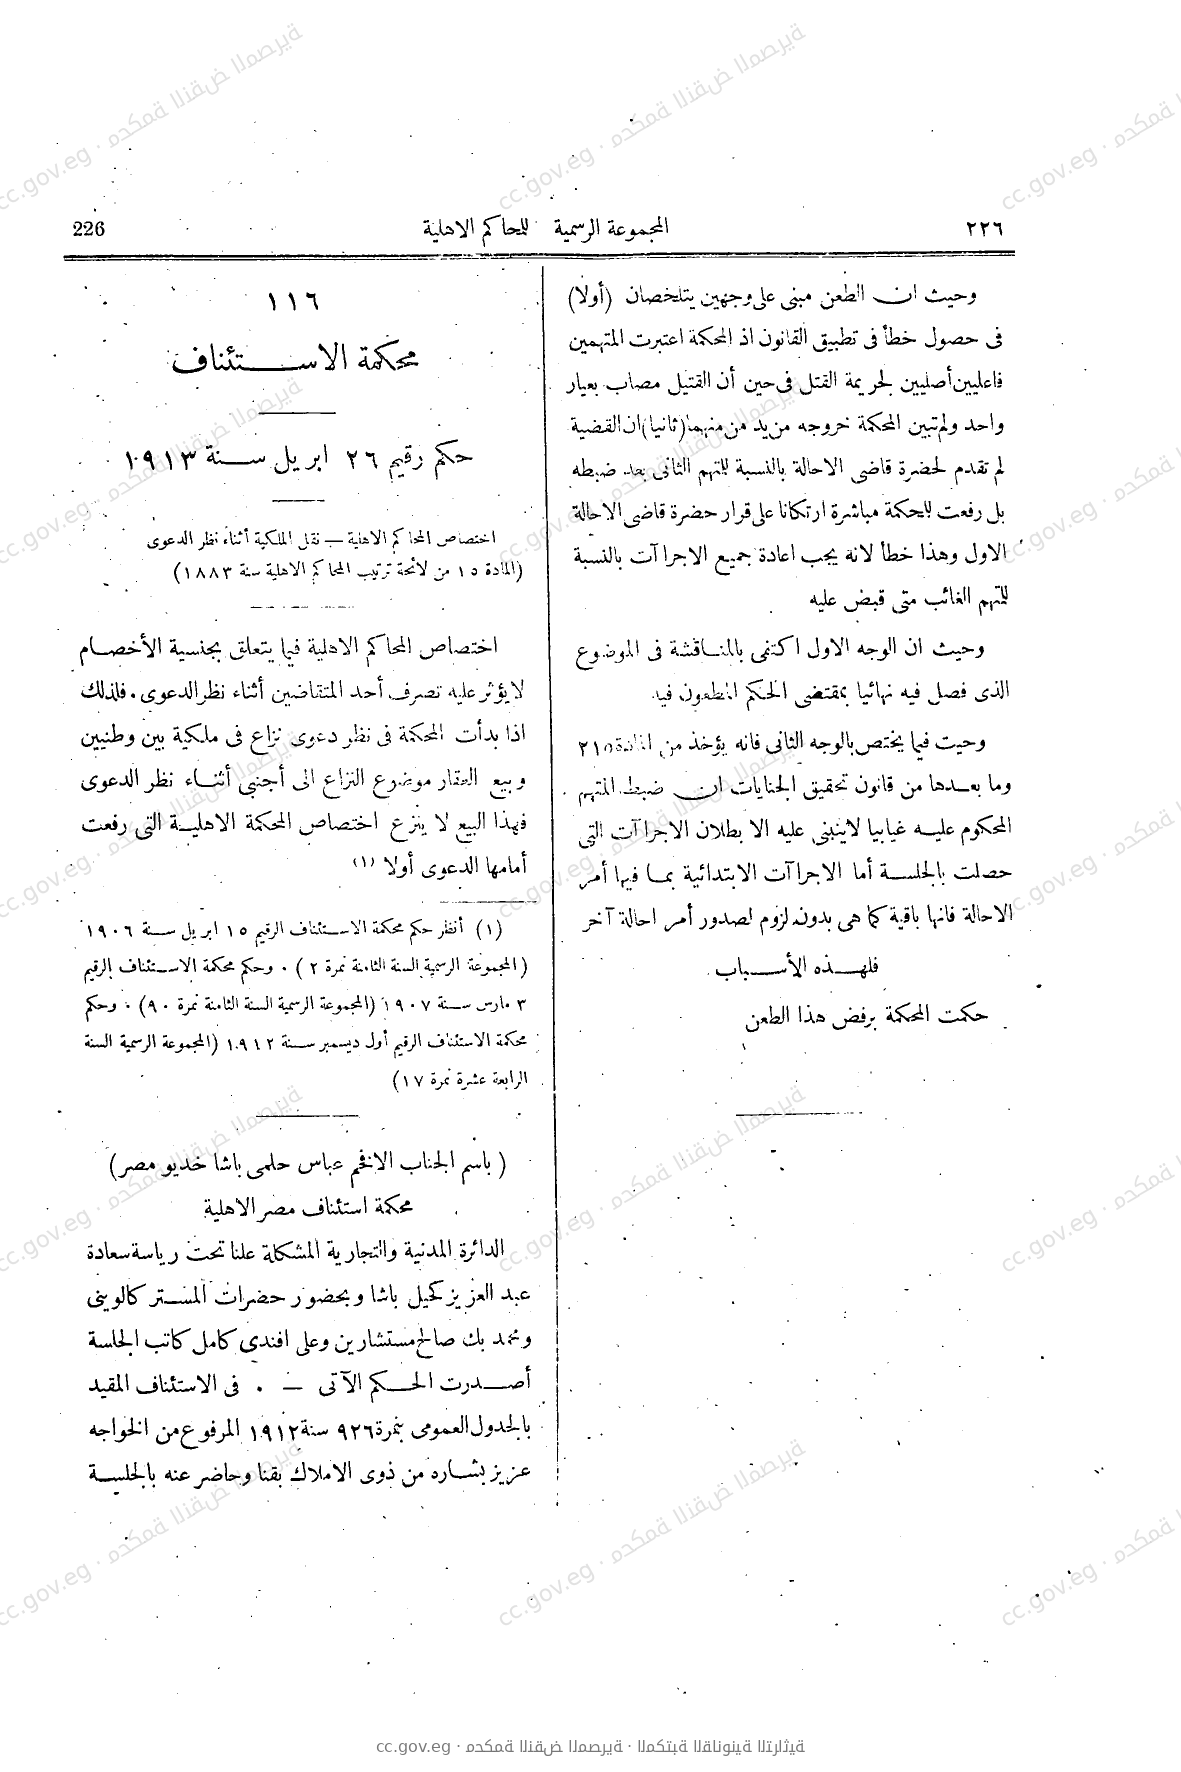 ٢٢٦
المجموعة الرسمية للمحاكم الاهلية
226
وحيث ان الطعن مبنى على وجهين يتلخصان (أولا)
فى حصول خطأ فى تطبيق القانون اذ المحكمة اعتبرت المتهمين
فاعليين أصليين لجريمة القتل فى حين أن القتيل مصاب بعيار
واحد ولم تبين المحكمة خروجه من يد من منهما (ثانيا) ان القضية
لم تقدم لحضرة قاضى الاحالة بالنسبة للمتهم الثانى بعد ضبطه
بل رفعت للحكمة مباشرة ارتكانا على قرار حضرة قاضى الاحالة
الاول وهذا خطأ لانه يجب اعادة جميع الاجراآت بالنسبة
للمتهم الغائب متى قبض عليه
وحيث ان الوجه الاول اكتفى بالمناقشة فى الموضوع
الذى فصل فيه نهائيا بمقتضى الحكم المطعون فيه
وحيث فيما يختص بالوجه الثانى فانه يؤخذ من المادة ٢١٥
وما بعدها من قانون تحقيق الجنايات ان ضبط المتهم
المحكوم عليه غيابيا لاينبنى عليه الا بطلان الاجراآت التى
حصلت بالجلسة أما الاجراآت الابتدائية بما فيها أمر
الاحالة فانها باقية كما هى بدون لزوم لصدور أمر احالة آخر
فلهذه الأسباب
حكمت المحكمة برفض هذا الطعن
١١٦
محكمة الاستئناف
حكم رقيم ٢٦ ابريل سنة ١٩١٣
اختصاص المحاكم الاهلية — نقل الملكية أثناء نظر الدعوى
(المادة ١٥ من لائحة ترتيب المحاكم الاهلية سنة ١٨٨٣)
اختصاص المحاكم الاهلية فيما يتعلق بجنسية الأخصام
لا يؤثر عليه تصرف أحد المتقاضين أثناء نظر الدعوى. فلذلك
اذا بدأت المحكمة فى نظر دعوى نزاع فى ملكية بين وطنيين
وبيع العقار موضوع النزاع الى أجنبى أثناء نظر الدعوى
فهذا البيع لا ينزع اختصاص المحكمة الاهلية التى رفعت
أمامها الدعوى أولا (١)
(١) أنظر حكم محكمة الاستئناف الرقيم ١٥ ابريل سنة ١٩٠٦
(المجموعة الرسمية السنة الثامنة نمرة ٢) . وحكم محكمة الاستئناف الرقيم
٣ مارس سنة ١٩٠٧ (المجموعة الرسمية السنة الثامنة نمرة ٩٠) . وحكم
محكمة الاستئناف الرقيم أول ديسمبر سنة ١٩١٢ (المجموعة الرسمية السنة
الرابعة عشرة نمرة ١٧)
(باسم الجناب الافخم عباس حلمى باشا خديو مصر)
محكمة استئناف مصر الاهلية
الدائرة المدنية والتجارية المشكلة علنا تحت رياسة سعادة
عبد العزيز كحيل باشا وبحضور حضرات المستر كالوينى
ومحمد بك صالح مستشارين وعلى افندى كامل كاتب الجلسة
أصدرت الحكم الآتى — . فى الاستئناف المقيد
بالجدول العمومى بنمرة ٩٢٦ سنة ١٩١٢ المرفوع من الخواجه
عزيز بشاره من ذوى الاملاك بقنا وحاضر عنه بالجلسة
cc.gov.eg · محكمة النقض المصرية · المكتبة القانونية التراثية